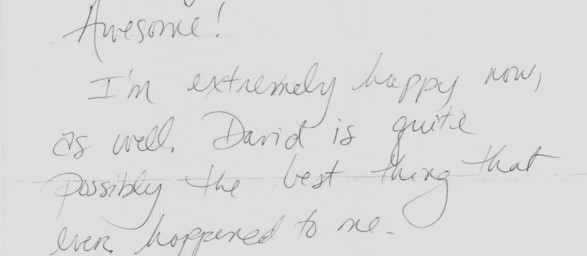 Awesome!
I'm extremely happy now,
as well. David is quite
possibly the best thing that
ever happened to me.